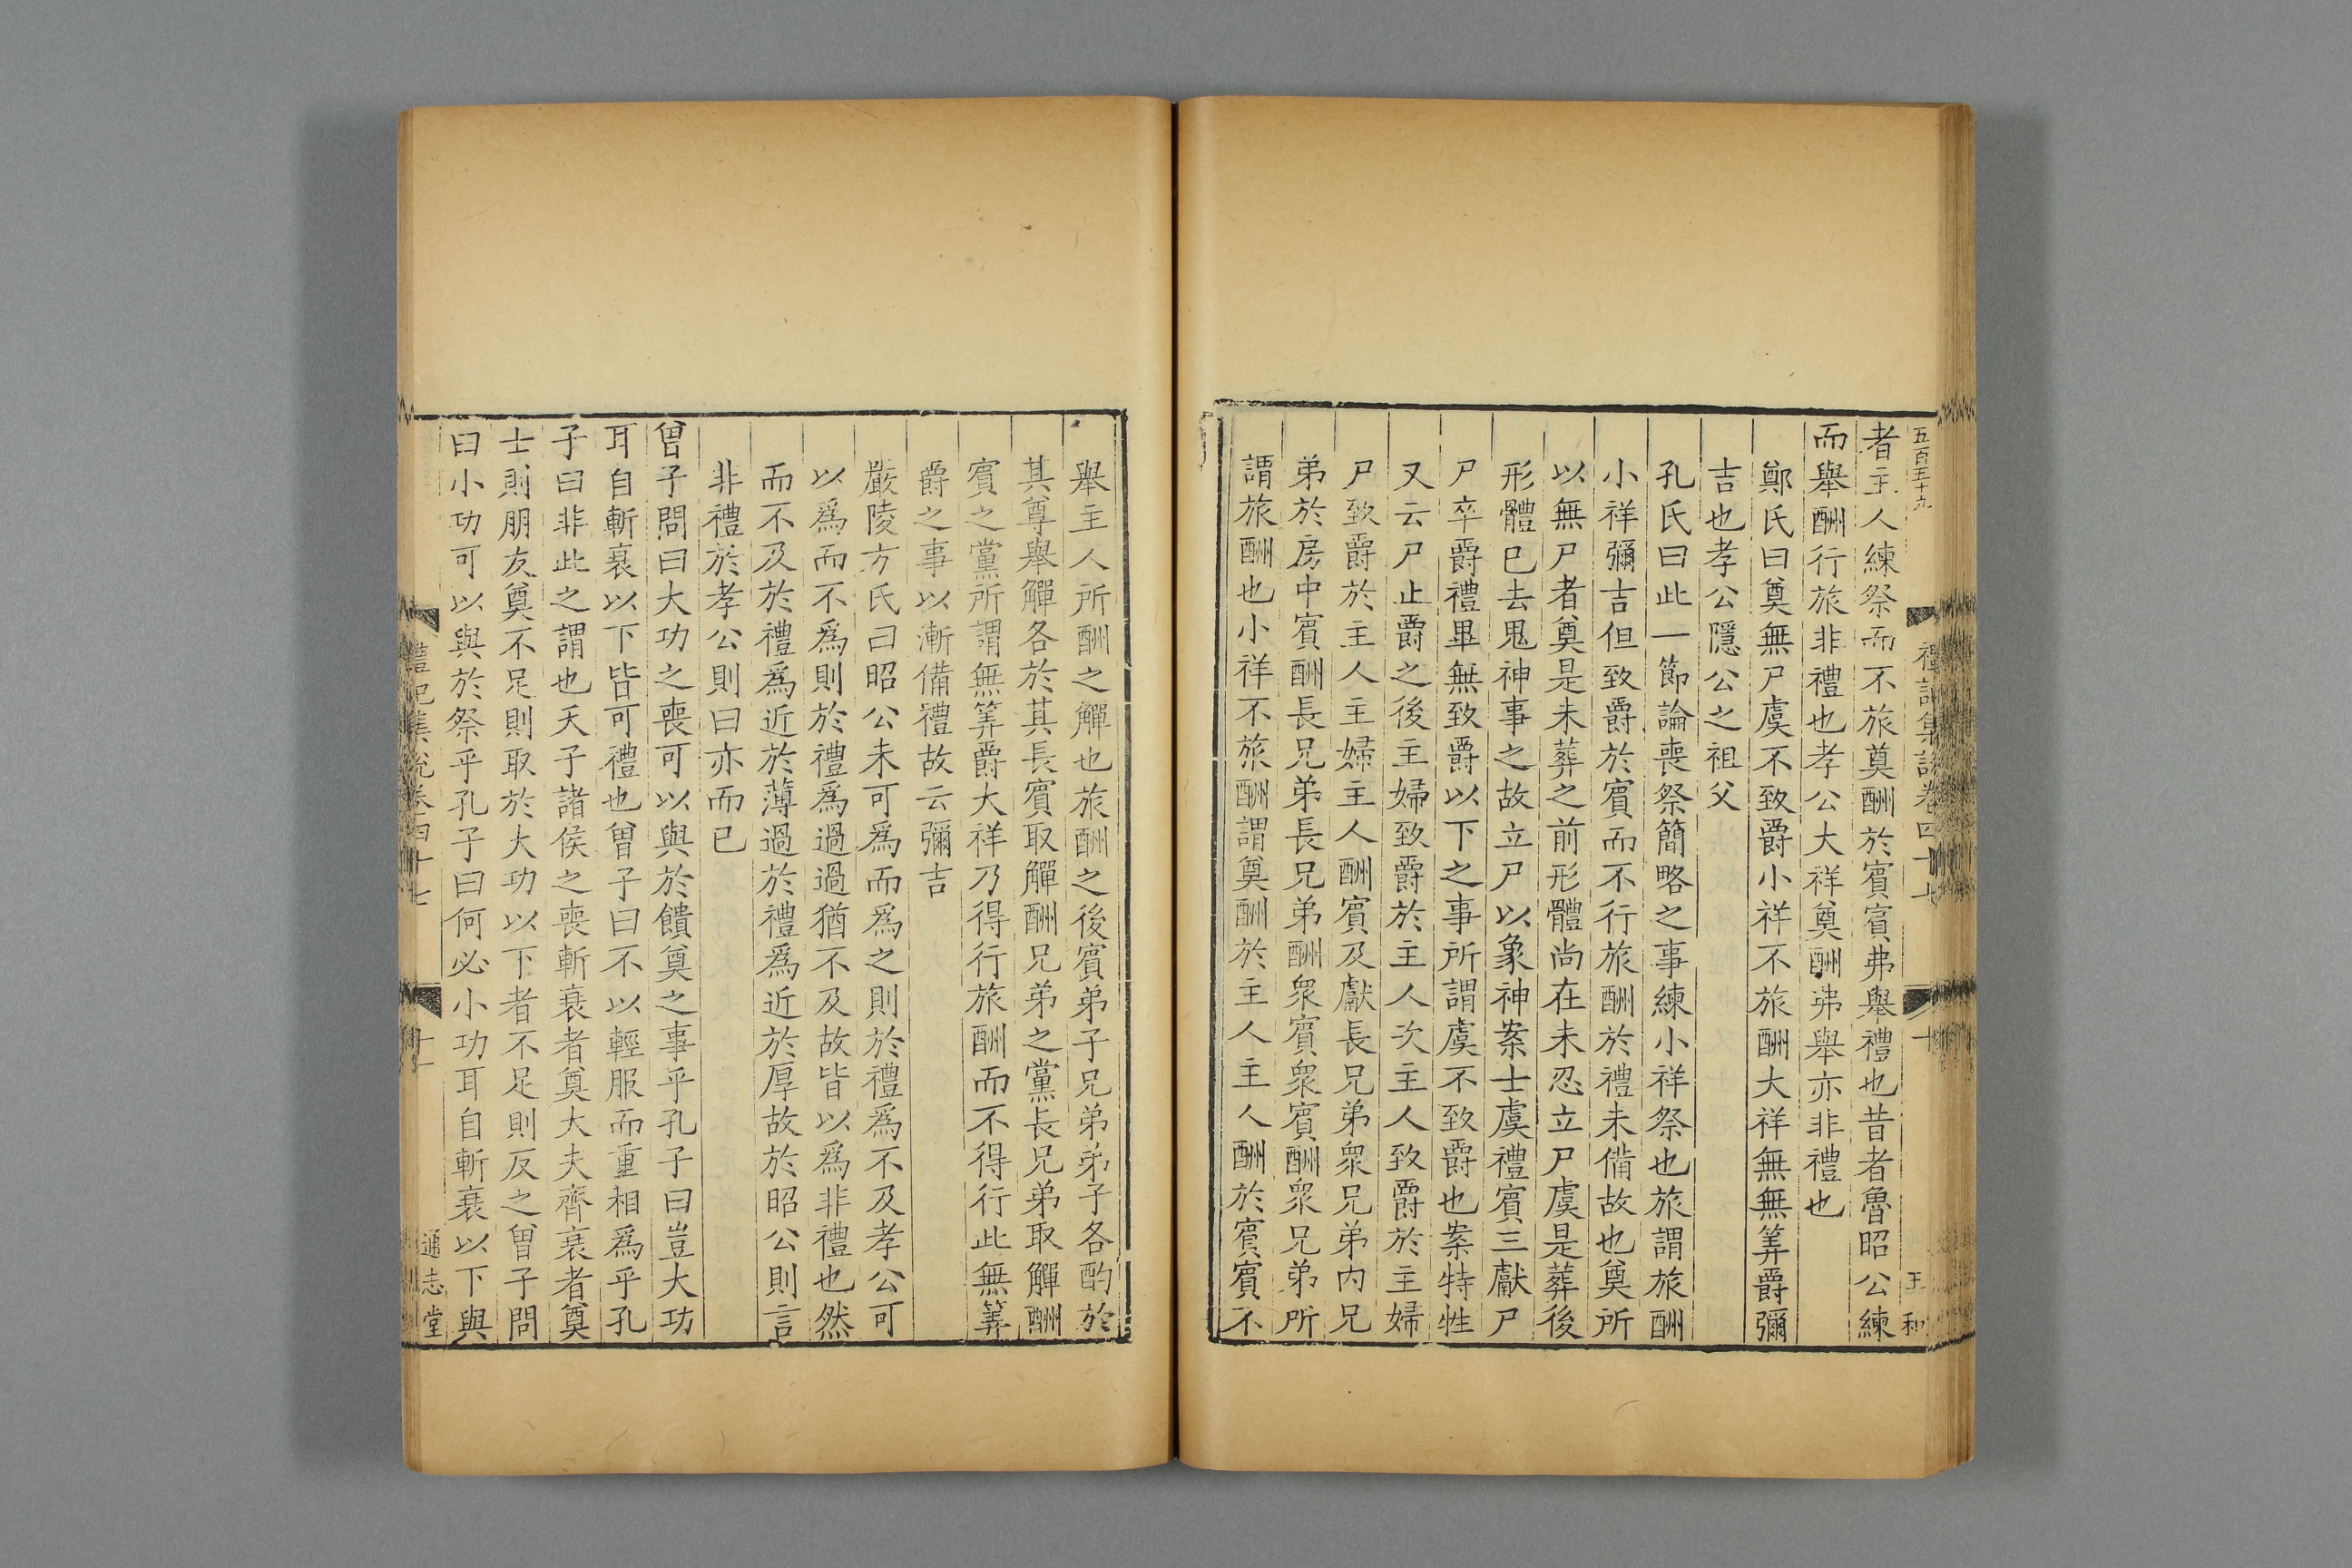 五百五十九
禮記集說卷四十七
十
王和
者主人練祭而不旅奠酬於賓賓弗舉禮也昔者魯昭公練
而舉酬行旅非禮也孝公大祥奠酬弗舉亦非禮也
鄭氏曰奠無尸虞不致爵小祥不旅酬大祥無無筭爵彌
吉也孝公隱公之祖父
孔氏曰此一節論喪祭簡略之事練小祥祭也旅謂旅酬
小祥彌吉但致爵於賓而不行旅酬於禮未備故也奠所
以無尸者奠是未葬之前形體尚在未忍立尸虞是葬後
形體已去鬼神事之故立尸以象神案士虞禮賓三獻尸
尸卒爵禮畢無致爵以下之事所謂虞不致爵也案特牲
又云尸止爵之後主婦致爵於主人次主人致爵於主婦
尸致爵於主人主婦主人酬賓及獻長兄弟衆兄弟內兄
弟於房中賓酬長兄弟長兄弟酬衆賓衆賓酬衆兄弟所
謂旅酬也小祥不旅酬謂奠酬於主人主人酬於賓賓不
舉主人所酬之觶也旅酬之後賓弟子兄弟弟子各酌於
其尊舉觶各於其長賓取觶酬兄弟之黨長兄弟取觶酬
賓之黨所謂無筭爵大祥乃得行旅酬而不得行此無筭
爵之事以漸備禮故云彌吉
嚴陵方氏曰昭公未可爲而爲之則於禮爲不及孝公可
以爲而不爲則於禮爲過過猶不及故皆以爲非禮也然
而不及於禮爲近於薄過於禮爲近於厚故於昭公則言
非禮於孝公則曰亦而已
曾子問曰大功之喪可以與於饋奠之事乎孔子曰豈大功
耳自斬衰以下皆可禮也曾子曰不以輕服而重相爲乎孔
子曰非此之謂也天子諸侯之喪斬衰者奠大夫齊衰者奠
士則朋友奠不足則取於大功以下者不足則反之曾子問
曰小功可以與於祭乎孔子曰何必小功耳自斬衰以下與
禮記集說卷四十七
十一
通志堂